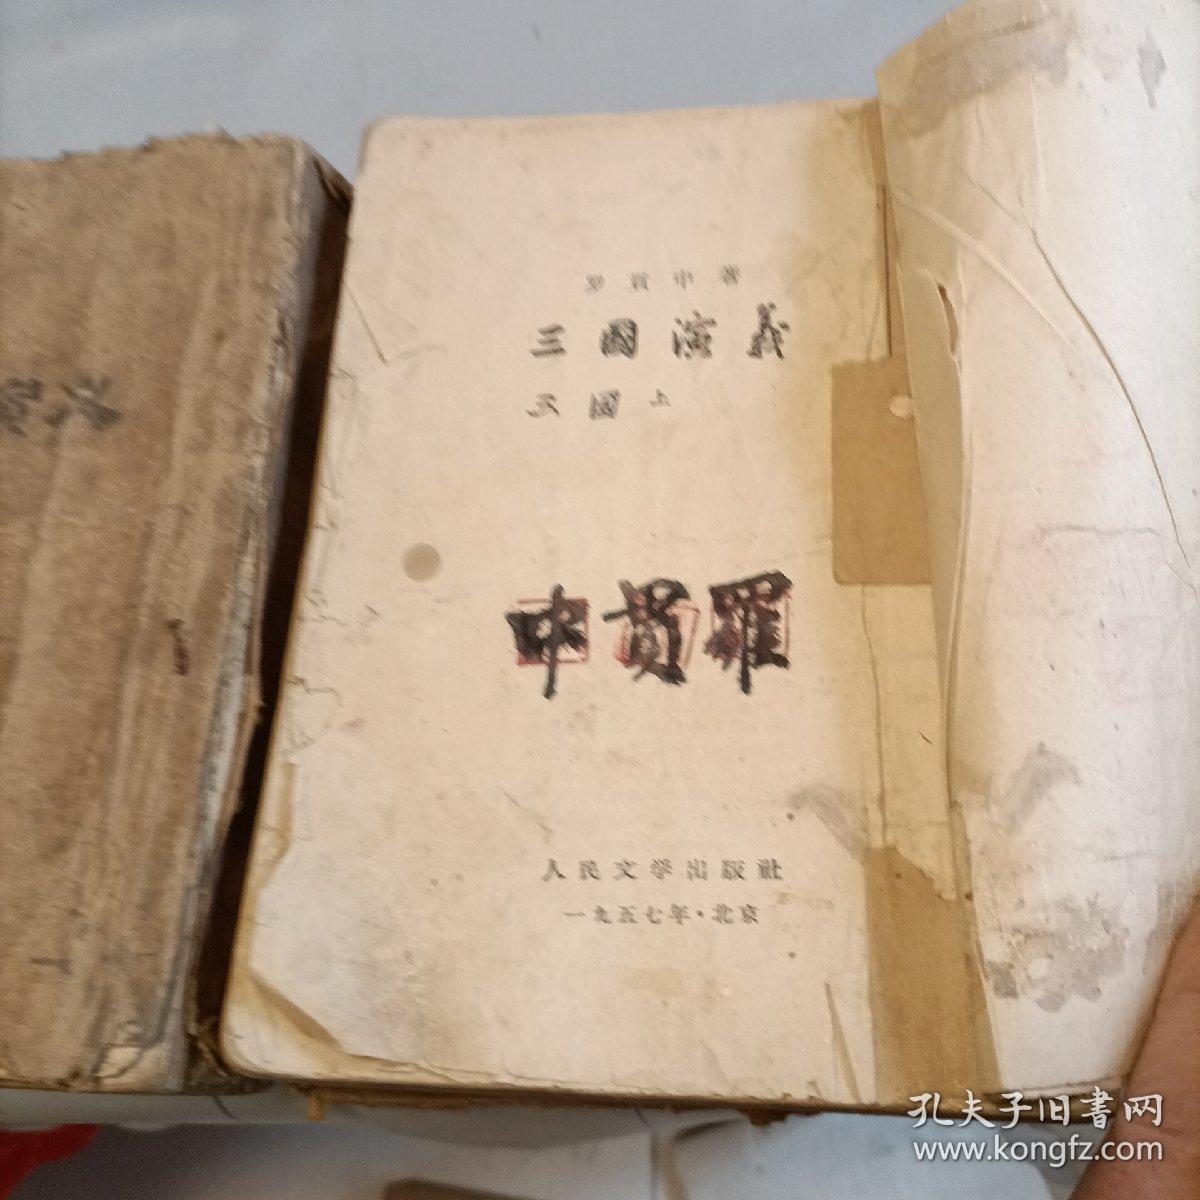 罗貫中著
三國演義
三國 上
中貫羅
人民文学出版社
一九五七年·北京
孔夫子旧書网
www.kongfz.com